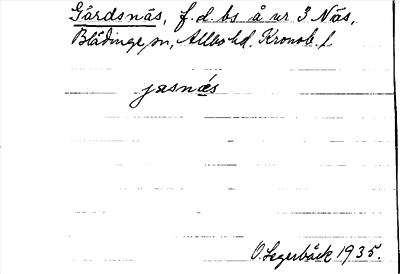 Gårdsnäs, f.d. bs å nr 3 Näs,
Blädinge sn, Allbo hd. Kronob. l
jasnäs
O. Legerbäck 1935.